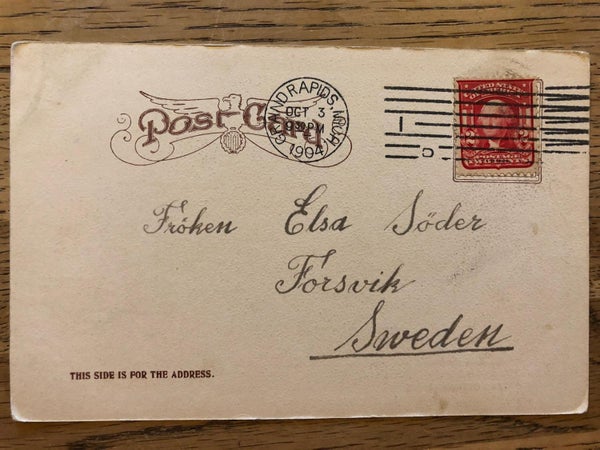 Post Card
GRAND RAPIDS, MICH.
OCT 3
PM
1904
UNITED STATES
OF AMERICA
2 2
POSTAGE
TWO CENTS
Fröken Elsa Söder
Forsvik
Sweden
THIS SIDE IS FOR THE ADDRESS.